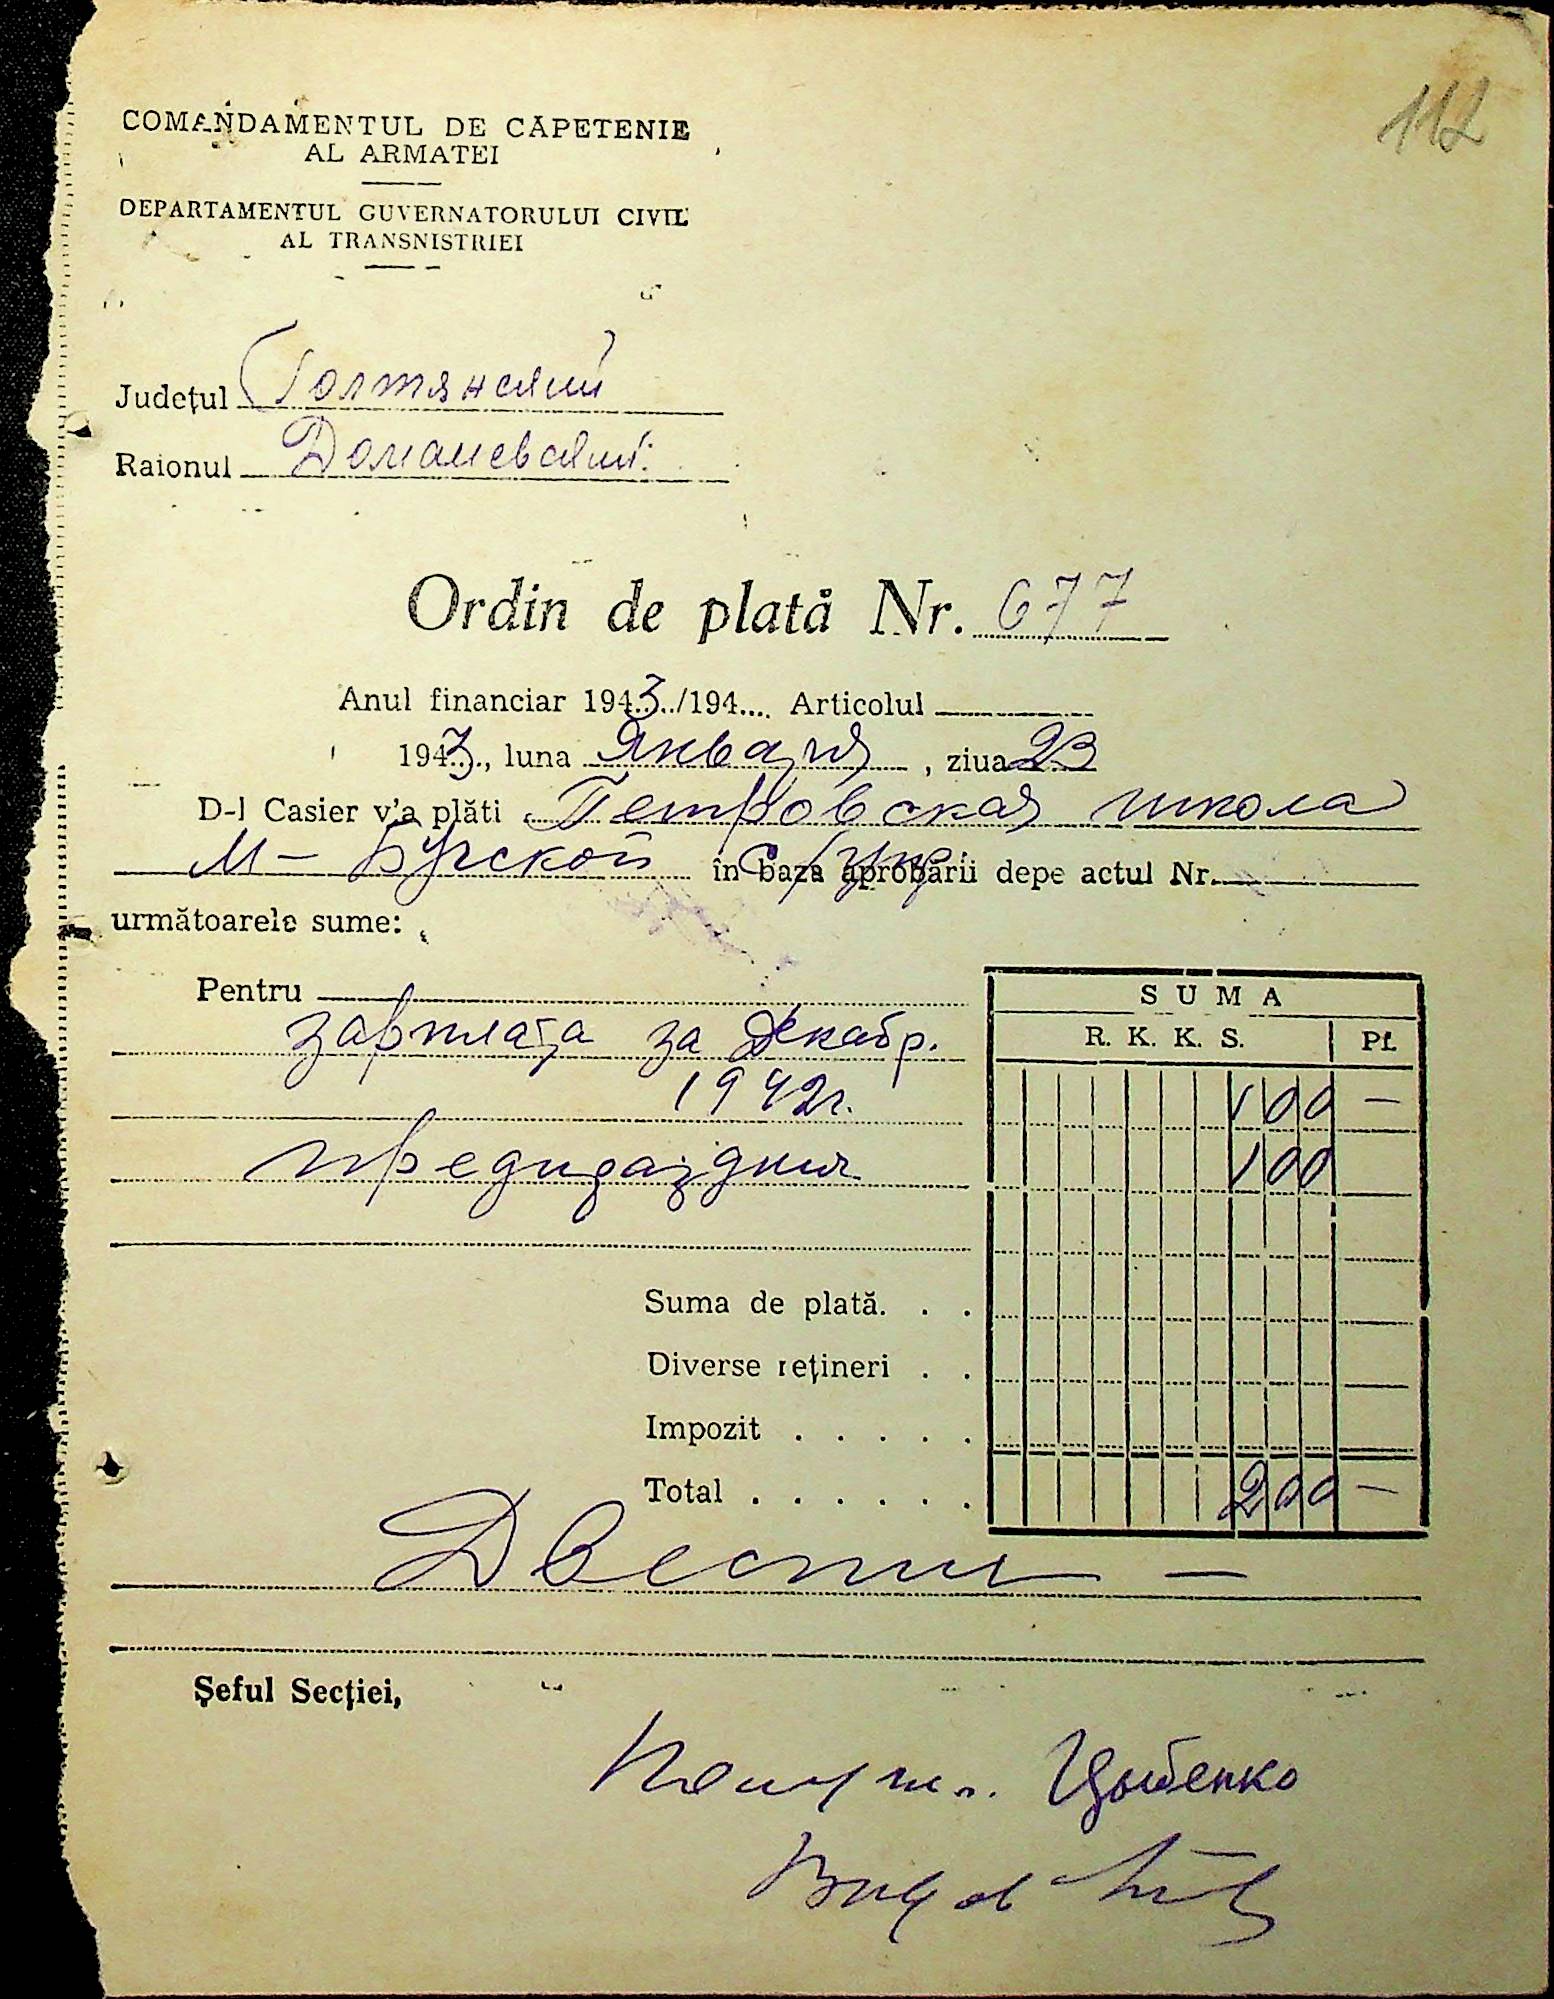 112
COMANDAMENTUL DE CĂPETENIE
AL ARMATEI
DEPARTAMENTUL GUVERNATORULUI CIVIL
AL TRANSNISTRIEI
Județul Голтянский
Raionul Доманевский
Ordin de plată Nr. 677
Anul financiar 1943../194.... Articolul
1943.., luna Января , ziua 23
D-l Casier v'a plăti Петровская школа
М-Бугской с/упр. în baza aprobării depe actul Nr.
următoarele sume:
Pentru
SUMA
R. K. K. S. Pf.
зарплата за Декабр.
1942г. 100 —
100
Suma de plată. . .
Diverse rețineri . .
Impozit . . . . .
Total . . . . . . 200 —
Двести —
Șeful Secției,
Цыбенко